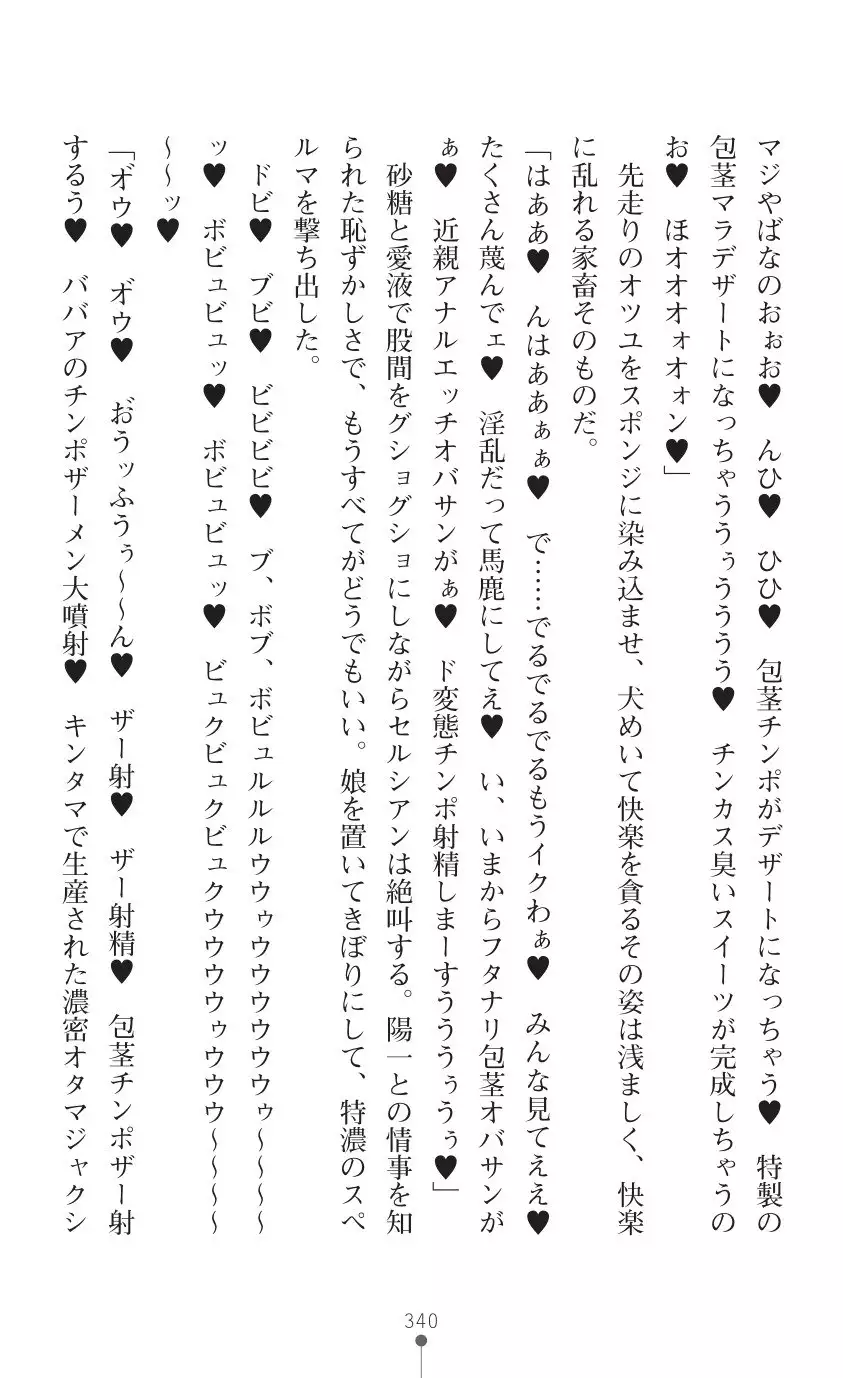 マジやばなのおぉお♥　んひ♥　ひひ♥　包茎チンポがデザートになっちゃう♥　特製の
包茎マラデザートになっちゃううぅうううう♥　チンカス臭いスイーツが完成しちゃうの
お♥　ほオオオォオォン♥」
　先走りのオツユをスポンジに染み込ませ、犬めいて快楽を貪るその姿は浅ましく、快楽
に乱れる家畜そのものだ。
「はああ♥　んはああぁぁ♥　で……でるでるでるもうイクわぁ♥　みんな見てええ♥
たくさん蔑んでェ♥　淫乱だって馬鹿にしてえ♥　い、いまからフタナリ包茎オバサンが
ぁ♥　近親アナルエッチオバサンがぁ♥　ド変態チンポ射精しまーすうううぅうぅ♥」
　砂糖と愛液で股間をグショグショにしながらセルシアンは絶叫する。陽一との情事を知
られた恥ずかしさで、もうすべてがどうでもいい。娘を置いてきぼりにして、特濃のスペ
ルマを撃ち出した。
　ドビ♥　ブビ♥　ビビビビ♥　ブ、ボブ、ボビュルルルウウゥウウウウウウゥ～～～～
ッ♥　ボビュビュッ♥　ボビュビュッ♥　ビュクビュクビュクウウウウゥウウウ～～～～
～～ッ♥
「オ゛ウ♥　オ゛ウ♥　お゛うッふうぅ～～ん♥　ザー射♥　ザー射精♥　包茎チンポザー射
するう♥　ババアのチンポザーメン大噴射♥　キンタマで生産された濃密オタマジャクシ
340